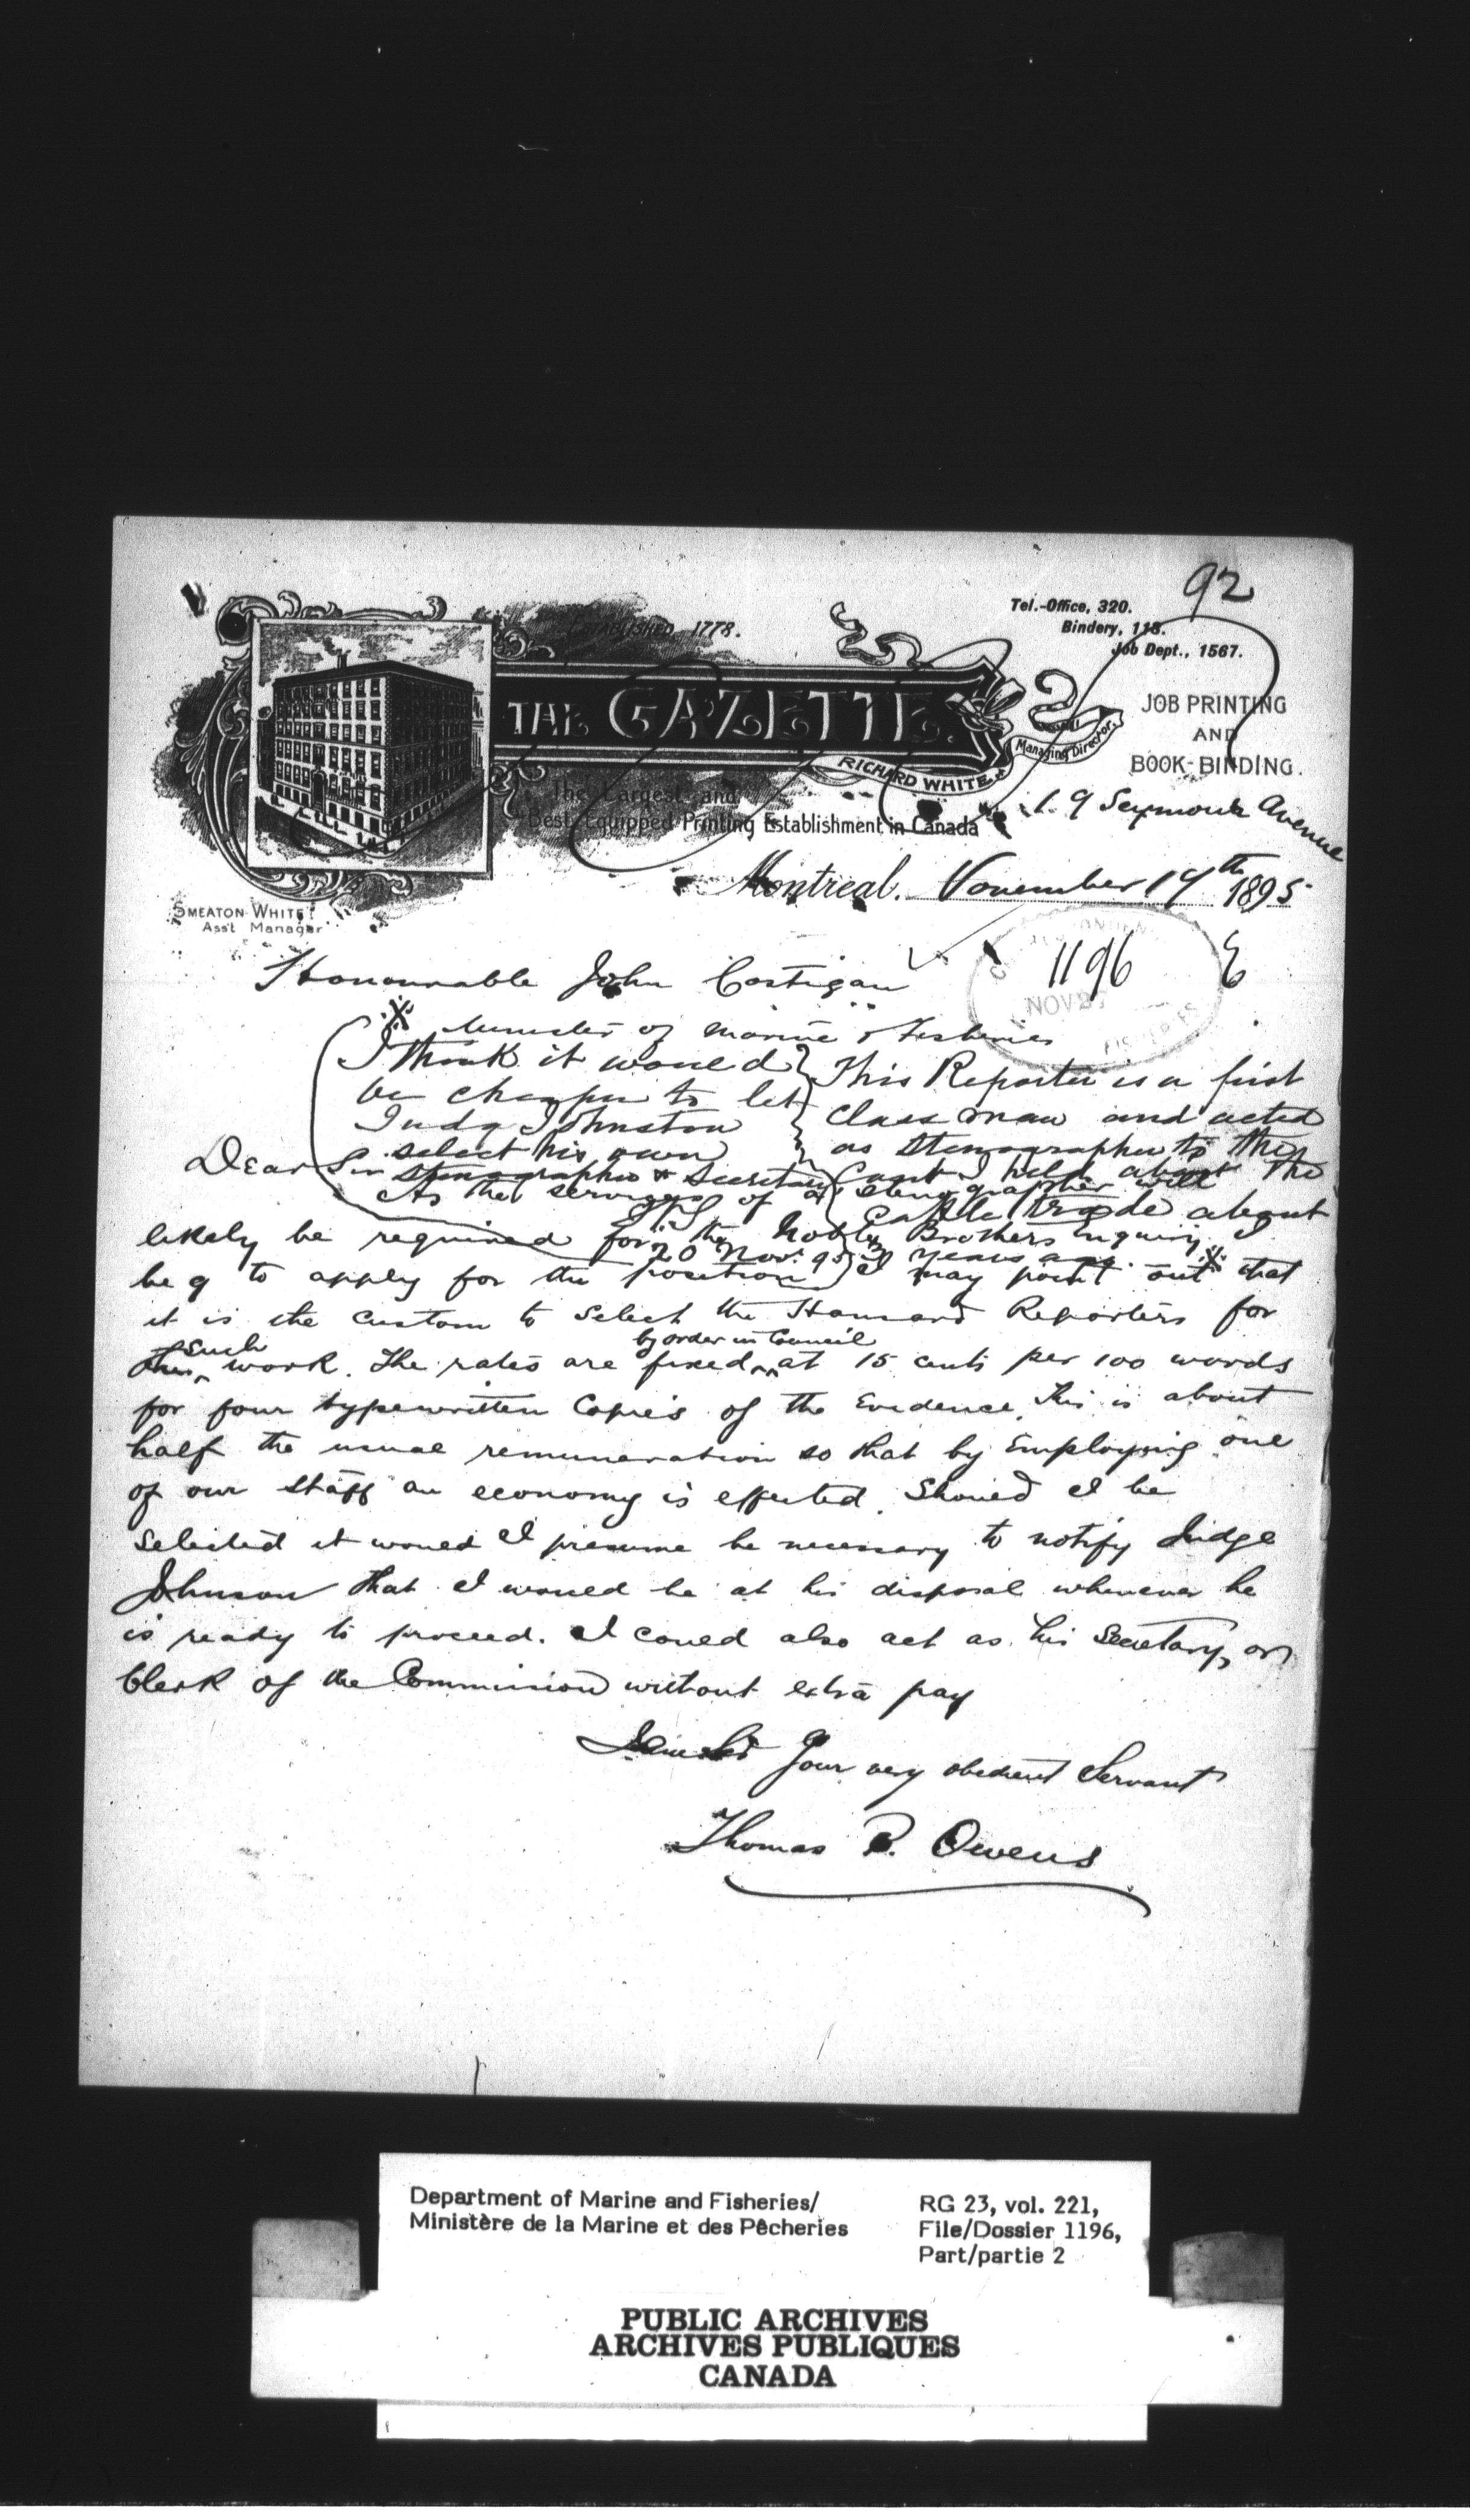 92
Tel.-Office, 320.
Bindery, 118.
Job Dept., 1567.
ESTABLISHED 1778.
THE GAZETTE.
RICHARD WHITE
Managing Director.
JOB PRINTING
AND
BOOK-BINDING.
The Largest and
Best Equipped Printing Establishment in Canada
19 Seymour Avenue
Montreal. November 19th 1895
SMEATON WHITE
Ass't Manager
1196 E
NOV
Honourable John Costigan
Minister of Marine & Fisheries
I think it would
be cheaper to let
Judg Johnston
select his own
stenographer & Secretary
20 Nov. 95
This Reporter is a first
class man and acted
as stenographer to the
Court I held about the
Cattle trade about
years ago
Dear Sir
As the services of a stenographer will
likely be required for the Noble Brothers inquiry I
beg to apply for the position I may point out that
it is the custom to select the Hansard Reporters for
such work. The rates are fixed by order in Council at 15 cents per 100 words
for four typewritten Copies of the Evidence. This is about
half the usual remuneration so that by Employing one
of our staff an economy is effected. Should I be
selected it would I presume be necessary to notify Judge
Johnson that I would be at his disposal whenever he
is ready to proceed. I could also act as his Secretary, or
Clerk of the Commission without extra pay
Your very obedient Servant
Thomas P. Owens
Department of Marine and Fisheries/
Ministère de la Marine et des Pêcheries
RG 23, vol. 221,
File/Dossier 1196,
Part/partie 2
PUBLIC ARCHIVES
ARCHIVES PUBLIQUES
CANADA